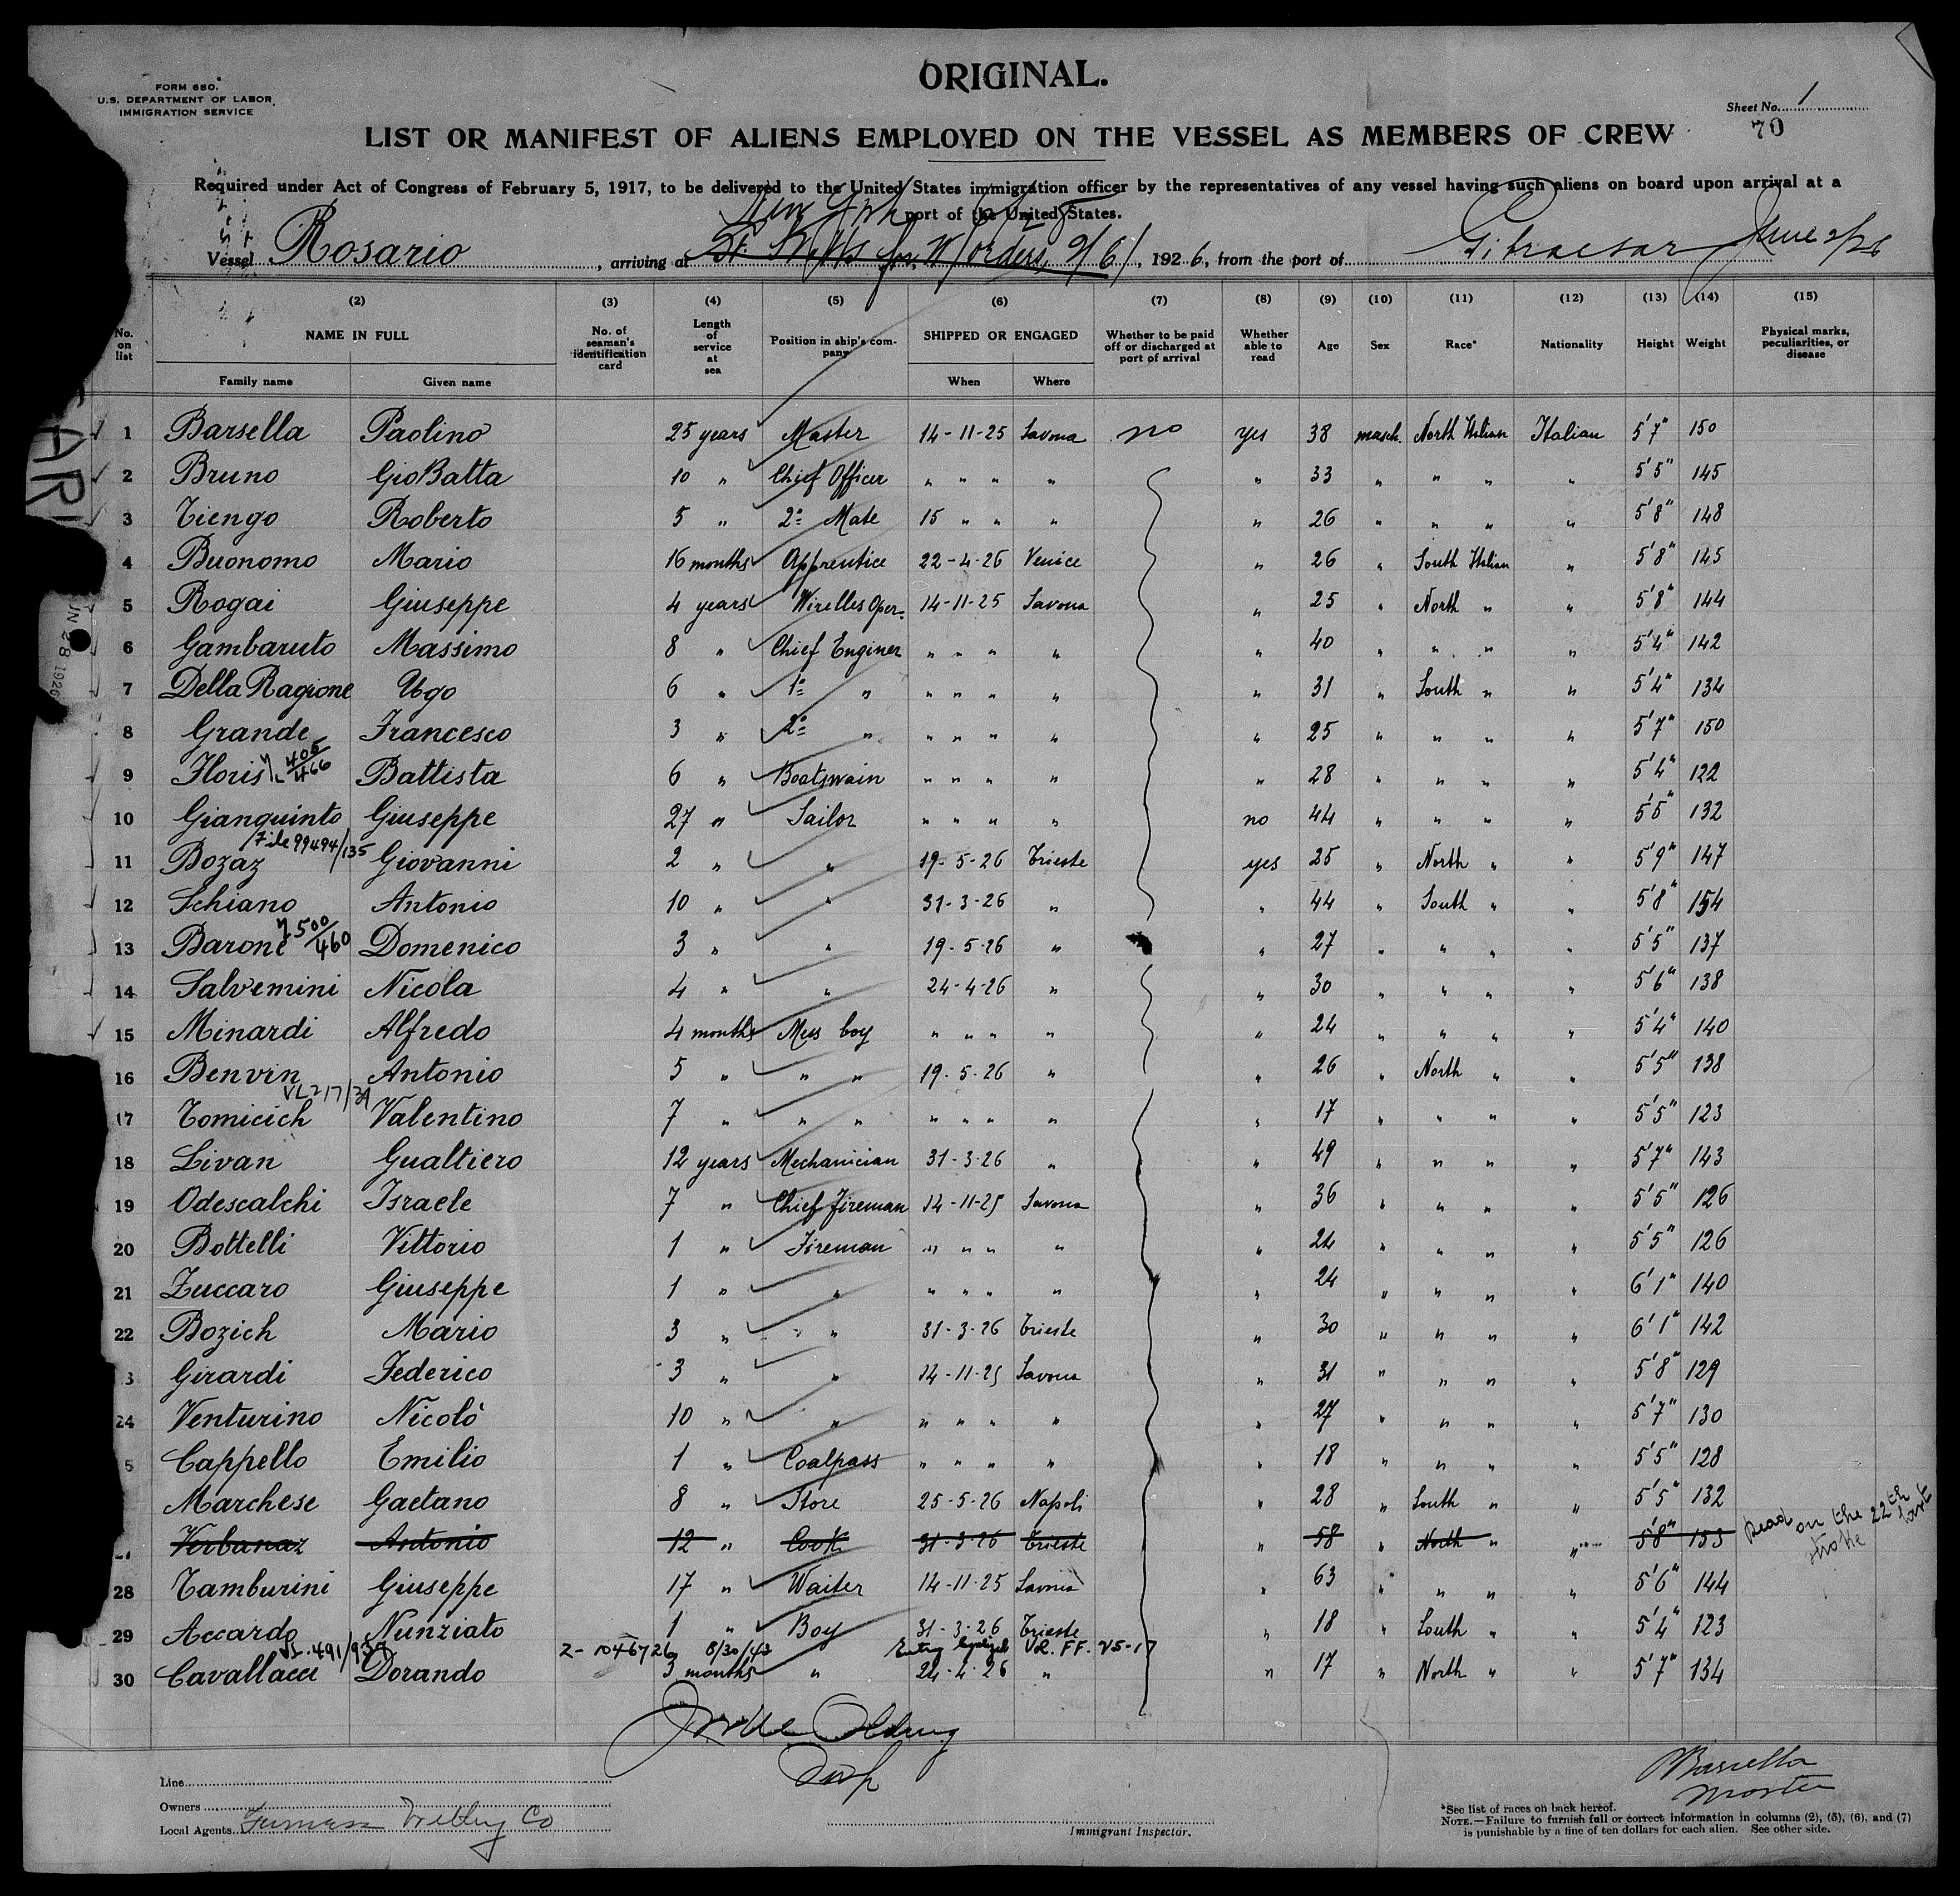 ORIGINAL.
FORM 680.
U.S. DEPARTMENT OF LABOR
IMMIGRATION SERVICE
Sheet No. 1
70
LIST OR MANIFEST OF ALIENS EMPLOYED ON THE VESSEL AS MEMBERS OF CREW
Required under Act of Congress of February 5, 1917, to be delivered to the United States immigration officer by the representatives of any vessel having such aliens on board upon arrival at a
port of the United States.
New York
Vessel Rosario, arriving at St. Kitts for W/orders 9/6/, 1926, from the port of Gibraltar June 2/26
(2) (3) (4) (5) (6) (7) (8) (9) (10) (11) (12) (13) (14) (15)
No. on list NAME IN FULL No. of seaman's identification card Length of service at sea Position in ship's company SHIPPED OR ENGAGED Whether to be paid off or discharged at port of arrival Whether able to read Age Sex Race* Nationality Height Weight Physical marks, peculiarities, or disease
Family name Given name When Where
1 Barsella Paolino 25 years Master 14-11-25 Savona no yes 38 masch. North Italian Italian 5'7" 150
2 Bruno GioBatta 10 " Chief Officer " " " " " 33 " " " " 5'5" 145
3 Tiengo Roberto 5 " 2º Mate 15 " " " " 26 " " " " 5'8" 148
4 Buonomo Mario 16 months Apprentice 22-4-26 Venice " 26 " South Italian " 5'8" 145
5 Rogai Giuseppe 4 years Wirelles Oper. 14-11-25 Savona " 25 " North " " 5'8" 144
6 Gambaruto Massimo 8 " Chief Enginer " " " " " 40 " " " " 5'4" 142
7 Della Ragione Ugo 6 " 1º " " " " " " 31 " South " " 5'4" 134
8 Grande Francesco 3 " 2º " " " " " " 25 " " " " 5'7" 150
9 Floris Battista 6 " Boatswain " " " " " 28 " " " " 5'4" 122
10 Gianquinto Giuseppe 27 " Sailor " " " " no 44 " " " " 5'5" 132
File 99494/135
11 Bozaz Giovanni 2 " " 19-5-26 Trieste yes 25 " North " " 5'9" 147
12 Schiano Antonio 10 " " 31-3-26 " " 44 " South " " 5'8" 154
500/460
13 Barone Domenico 3 " " 19-5-26 " " 27 " " " " 5'5" 137
14 Salvemini Nicola 4 " " 24-4-26 " " 30 " " " " 5'6" 138
15 Minardi Alfredo 4 months Mess boy " " " " " 24 " " " " 5'4" 140
16 Benvin Antonio 5 " " " 19-5-26 " " 26 " North " " 5'5" 138
VL 217/34
17 Tomicich Valentino 7 " " " " " " " " 17 " " " " 5'5" 123
18 Livan Gualtiero 12 years Mechanician 31-3-26 " " 49 " " " " 5'7" 143
19 Odescalchi Israele 7 " Chief Fireman 14-11-25 Savona " 36 " " " " 5'5" 126
20 Bottelli Vittorio 1 " Fireman " " " " " 24 " " " " 5'5" 126
21 Zuccaro Giuseppe 1 " " " " " " " 24 " " " " 6'1" 140
22 Bozich Mario 3 " " 31-3-26 Trieste " 30 " " " " 6'1" 142
3 Girardi Federico 3 " " 14-11-25 Savona " 31 " " " " 5'8" 129
24 Venturino Nicolò 10 " " " " " " " 27 " " " " 5'7" 130
5 Cappello Emilio 1 " Coalpass " " " " " 18 " " " " 5'5" 128
Marchese Gaetano 8 " Store 25-5-26 Napoli " 28 " South " " 5'5" 132
Verbanaz Antonio 12 " Cook 31-3-26 Trieste " 58 " North " " 5'8" 153 Dead on the 22th
28 Tamburini Giuseppe 17 " Waiter 14-11-25 Savona " 63 " " " " 5'6" 144
29 Accardo Nunziato 1 " Boy 31-3-26 Trieste " 18 " South " " 5'4" 123
VL. 491/937 2-1046726 8/30/43 Entry legalized Vol. FF. 25-17
30 Cavallacci Dorando 3 months " 24-4-26 " " 17 " North " " 5'7" 134
Barsella
Master
Line
Owners
Local Agents Furness Withy Co
Immigrant Inspector.
*See list of races on back hereof.
NOTE.—Failure to furnish full or correct information in columns (2), (5), (6), and (7)
is punishable by a fine of ten dollars for each alien. See other side.